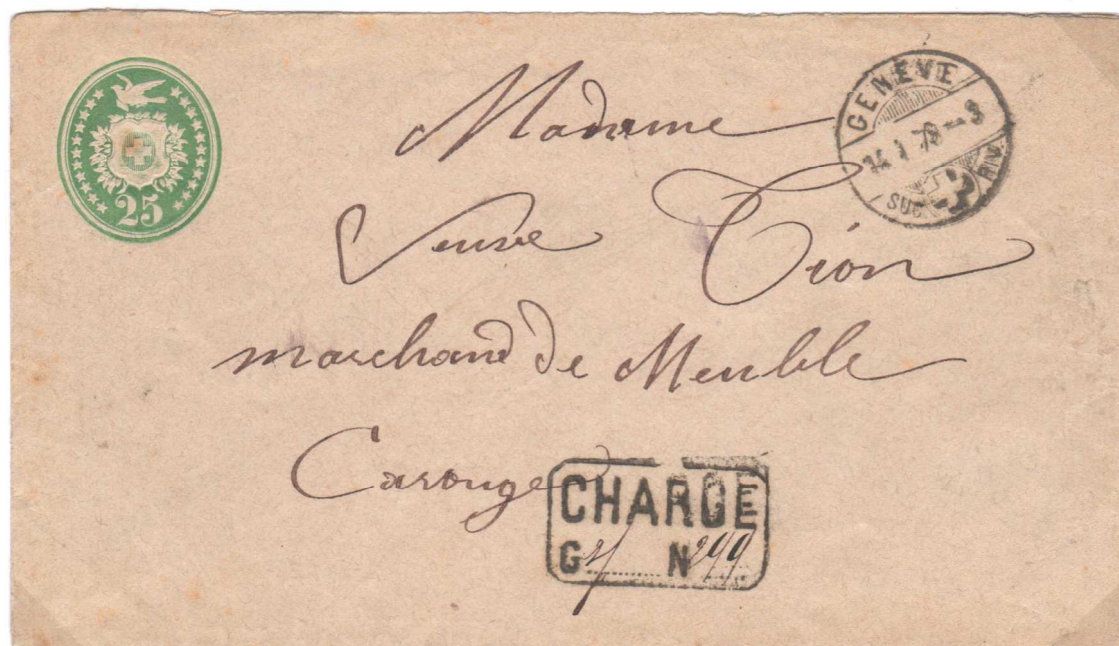 25
GENEVE
14. I. 79 – 3
SUCC RIV
Madame
Veuve Tion
marchand de Meuble
Carouge
CHARGE
G N 299